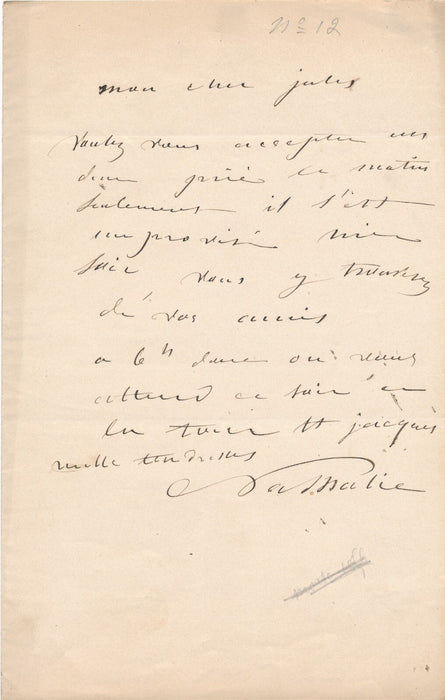 N° 12
mon cher jules
voulez vous accepter un
diner prié ce matin
seulement il s'est
improvisé hier
soir vous y trouverez
de vos amis
a 6h donc on vous
attend ce soir
la tour St jacques
mille tendresses
Nathalie